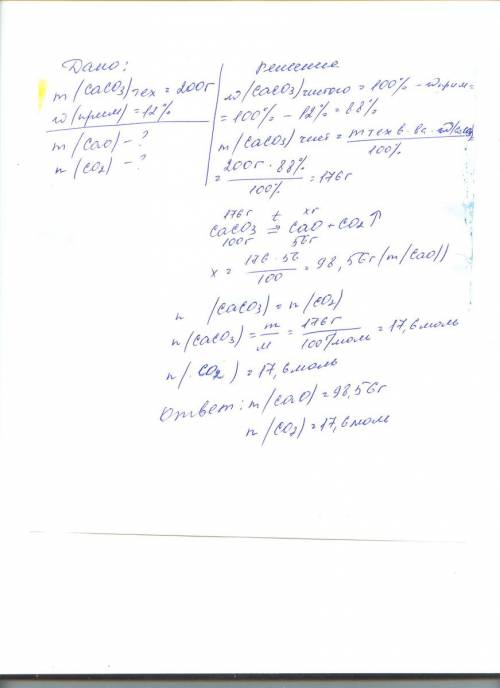 Дано:
m (CaCO3) тех = 200г
w (прим) = 12%
m (CaO) - ?
n (CO2) - ?
решение
w (CaCO3) чистого = 100% - wприм =
= 100% - 12% = 88%
m (CaCO3) чист = m тех в-ва · w(CaCO3)
100%
= 200г · 88%
100%
= 176г
176г t xг
CaCO3 = CaO + CO2↑
100г 56г
x = 176 · 56
100
= 98,56г (m(CaO))
n (CaCO3) = n (CO2)
n (CaCO3) = m
M
= 176г
100г/моль
= 17,6моль
n (CO2) = 17,6моль
Ответ: m (CaO) = 98,56г
n (CO2) = 17,6моль